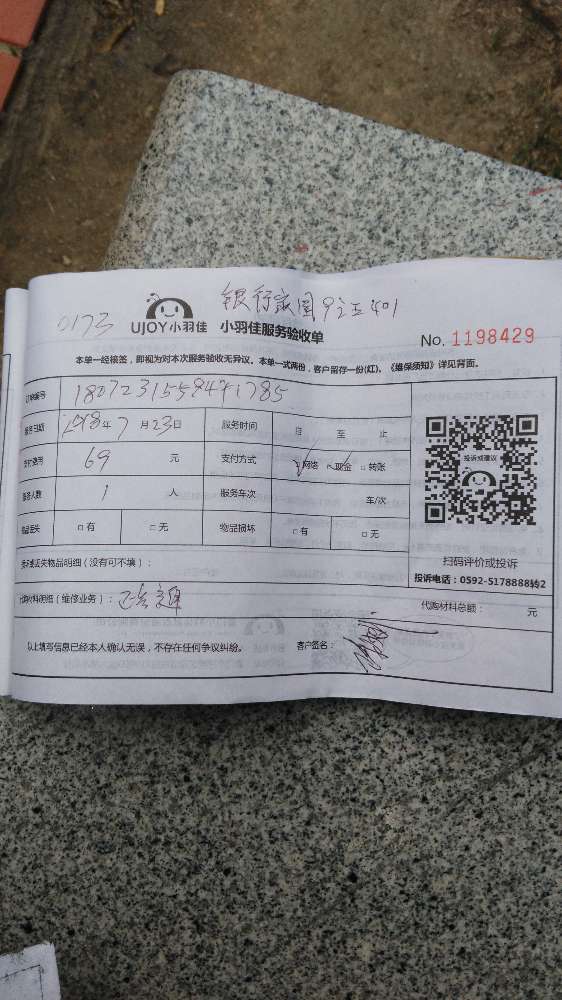 0173
UJOY小羽佳 小羽佳服务验收单
No. 1198429
本单一经接签，即视为对本次服务验收无异议。本单一式两份，客户留存一份(红)。《维保须知》详见背面。
订单编号
服务日期 2018年7月23日 服务时间 自 至 止
支付费用 69 元 支付方式 网络 现金 □转账
服务人数 1 人 服务车次 车/次
物品丢失 □有 □无 物品损坏 □有 □无
投诉或建议
扫码评价或投诉
投诉电话：0592-5178888转2
损坏或丢失物品明细（没有可不填）：
代购材料明细（维修业务）：
代购材料总额： 元
以上填写信息已经本人确认无误，不存在任何争议纠纷。 客户签名：